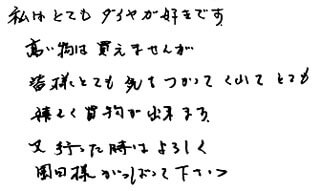 私はとてもダイヤが好きです
高い物は買えませんが
皆様とても気をつかってくれてとても
嬉しく買物が出来ます
又行った時はよろしく
岡田様がんばって下さい